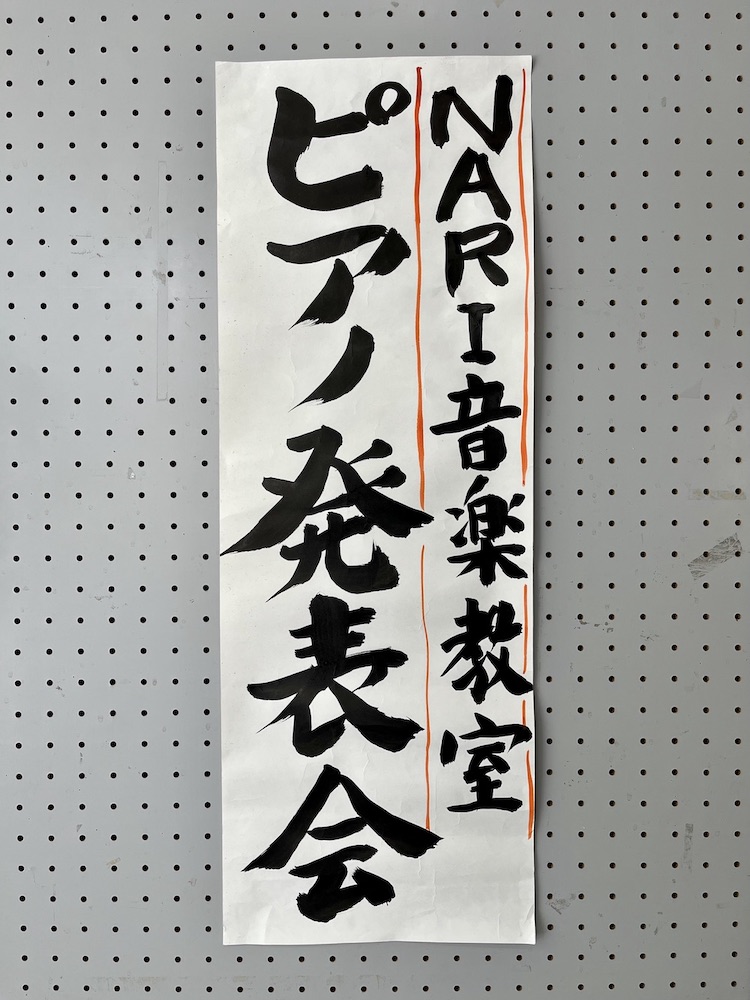 NARI音楽教室
ピアノ発表会